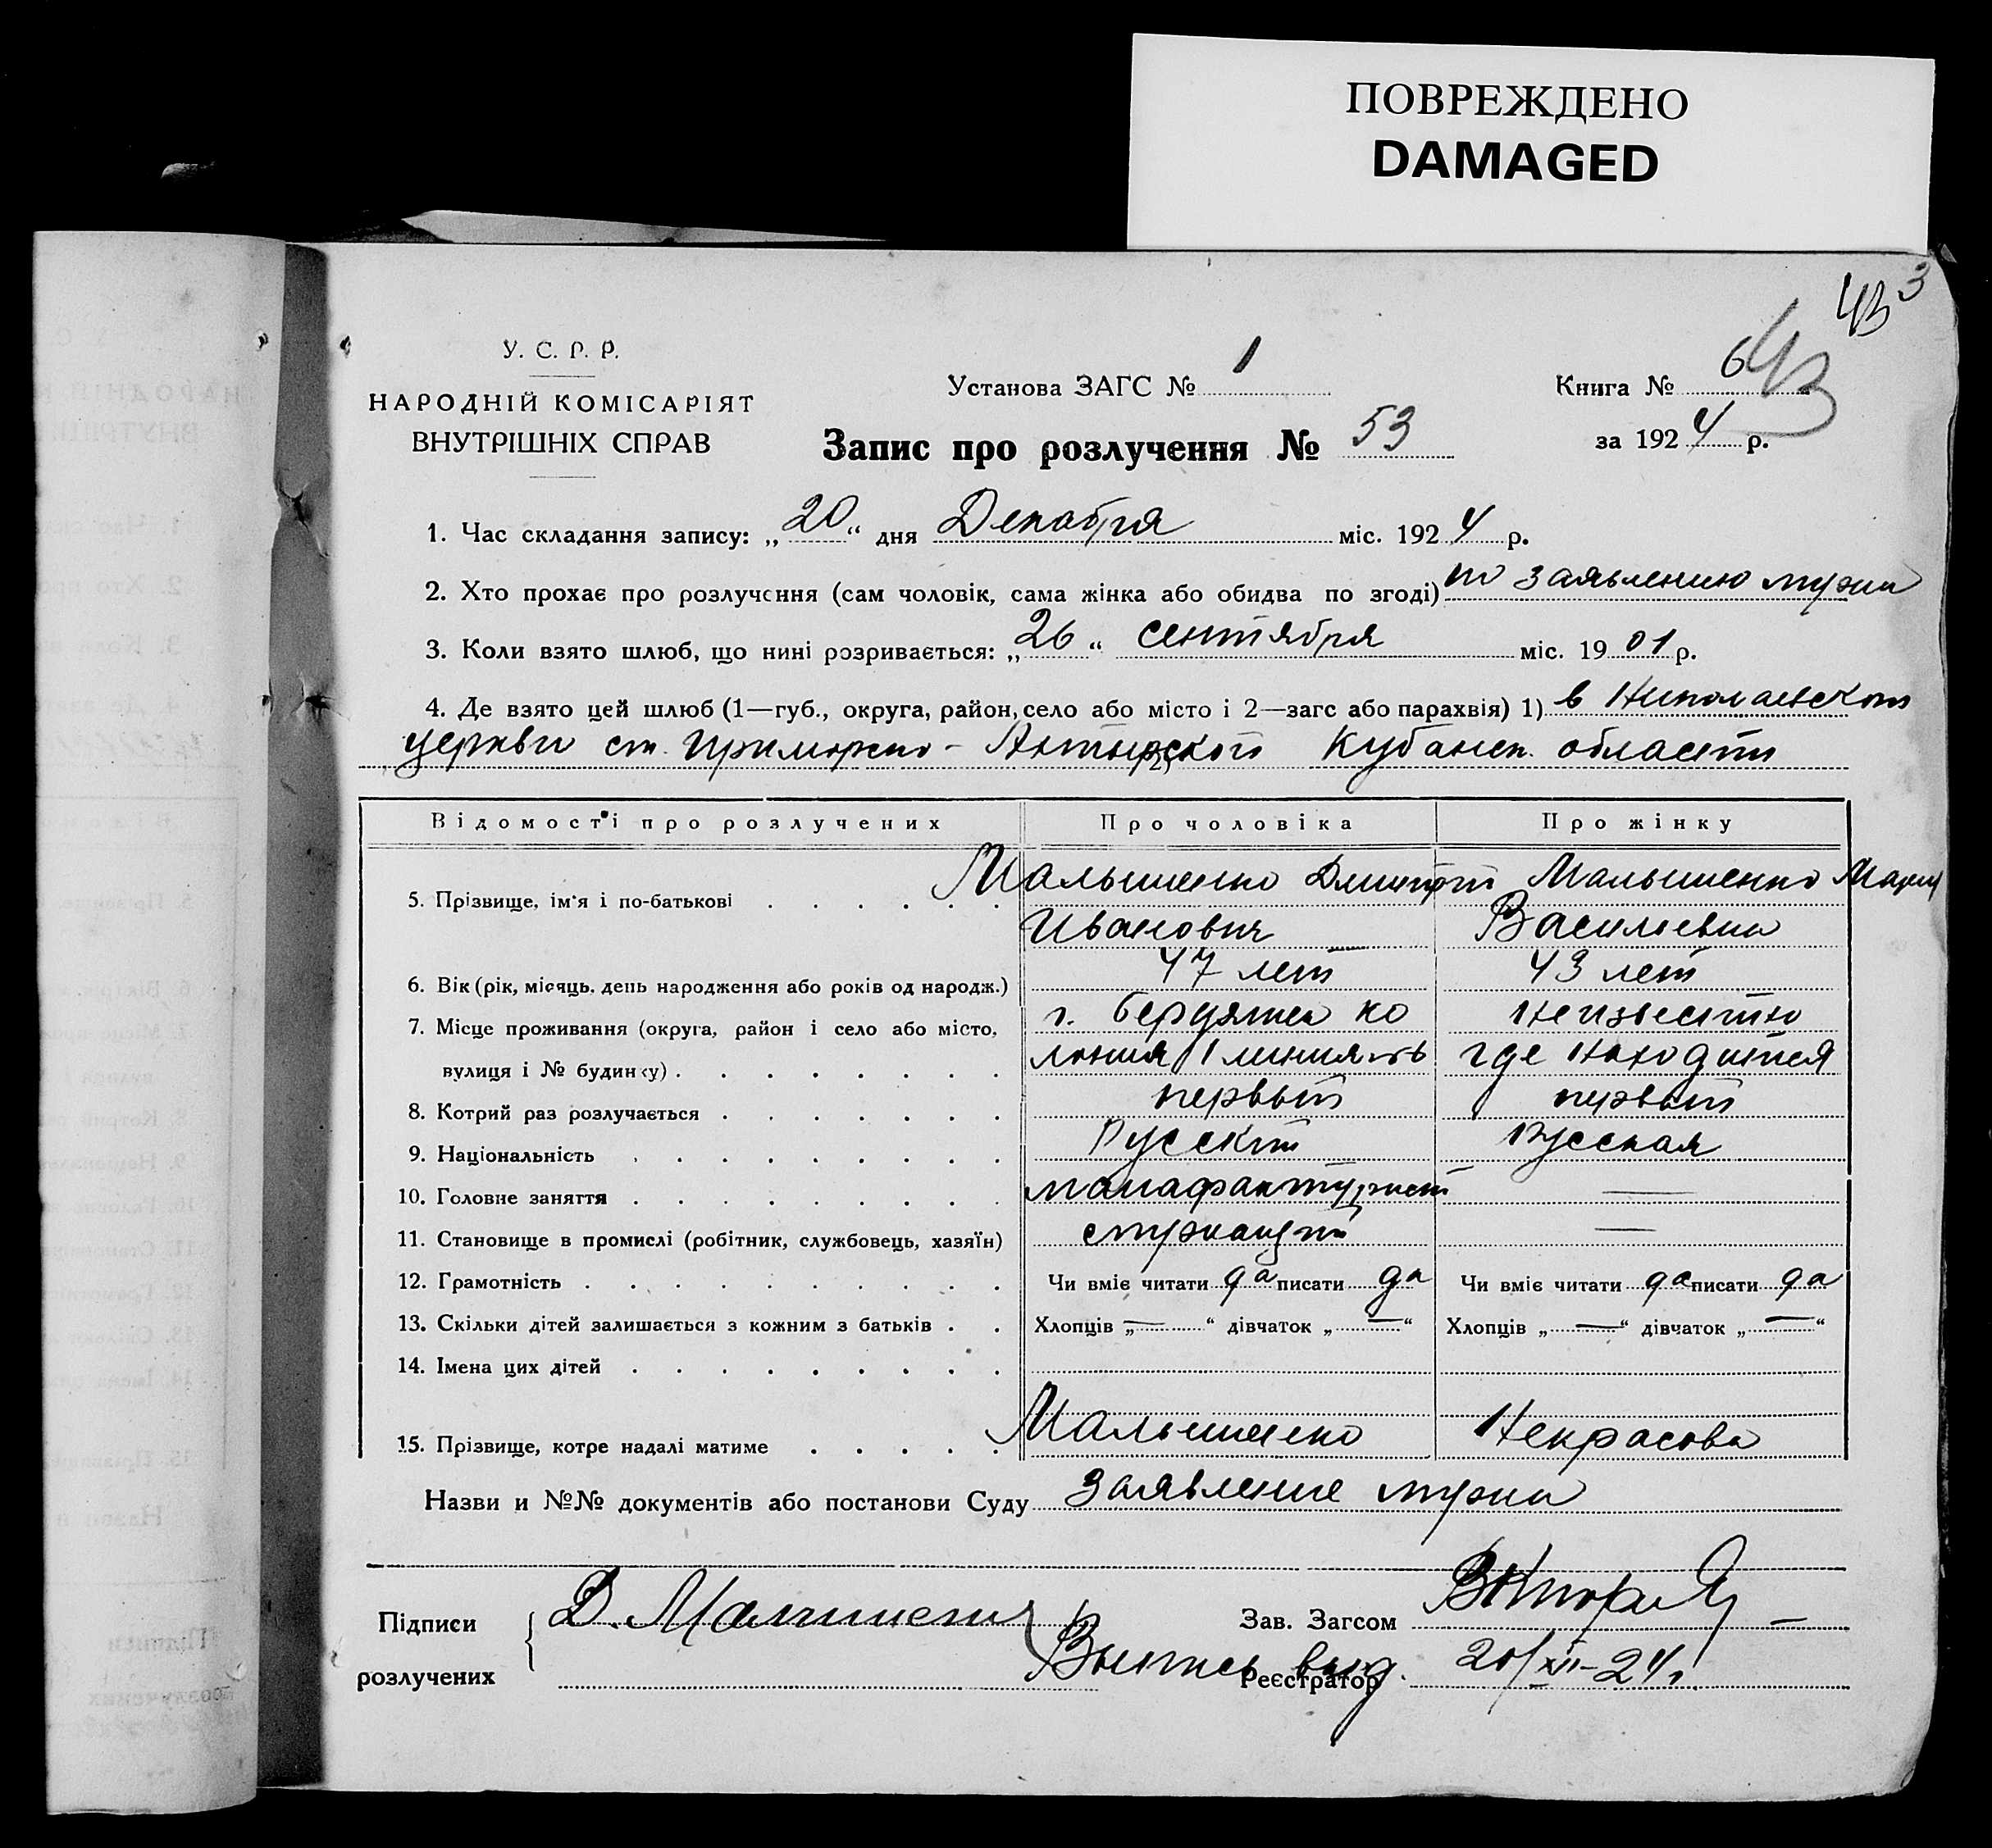 ПОВРЕЖДЕНО
DAMAGED
43 3
43
У. С. Р. Р.
НАРОДНІЙ КОМІСАРІЯТ
ВНУТРІШНІХ СПРАВ
Установа ЗАГС № 1
Книга № 6
Запис про розлучення № 53
за 1924 р.
1. Час складання запису: „20“ дня Декабря міс. 1924 р.
2. Хто прохає про розлучення (сам чоловік, сама жінка або обидва по згоді) по заявлению мужа
3. Коли взято шлюб, що нині розривається: „26“ сентября міс. 1901 р.
4. Де взято цей шлюб (1—губ., округа, район, село або місто і 2—загс або парахвія) 1) в Николаевской
церкви ст. Приморско-Ахтырской Кубанск. области
Відомості про розлучених Про чоловіка Про жінку
5. Прізвище, ім'я і по-батькові Малышенко Дмитрий Малышенко Мария
Иванович Васильевна
6. Вік (рік, місяць, день народження або років од народж.) 47 лет 43 лет
7. Місце проживання (округа, район і село або місто, г. Бердянск ко Неизвестно
вулиця і № будинку) лония 1 линия где находится
8. Котрий раз розлучається первый первый
9. Національність Русский Русская
10. Головне заняття манафактурист —
11. Становище в промислі (робітник, службовець, хазяїн) служащий —
12. Грамотність Чи вміє читати да писати да Чи вміє читати да писати да
13. Скільки дітей залишається з кожним з батьків Хлопців „—“ дівчаток „—“ Хлопців „—“ дівчаток „—“
14. Імена цих дітей
15. Прізвище, котре надалі матиме Малышенко Некрасова
Назви и №№ документів або постанови Суду заявление мужа
Підписи
розлучених
Д. Малышенко
Зав. Загсом
Выпись выд. 20/XII-24 г.
Реєстратор